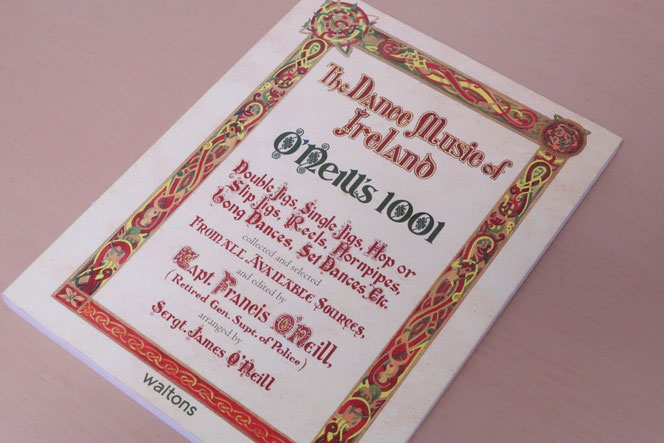 The Dance Music of
Ireland
O'Neill's 1001
Double Jigs, Single Jigs, Hop or
Slip Jigs, Reels, Hornpipes,
Long Dances, Set Dances, Etc.
collected and selected
From all Available Sources,
and edited by
Capt. Francis O'Neill,
(Retired Gen. Supt. of Police)
arranged by
Sergt. James O'Neill
waltons